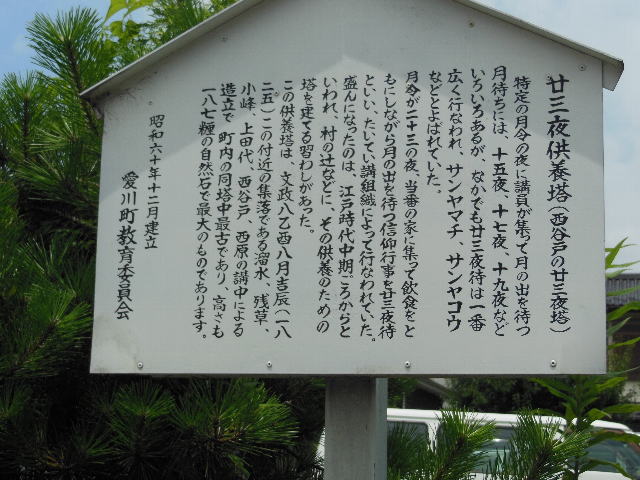 廿三夜供養塔(西谷戸の廿三夜塔)
特定の月令の夜に講員が集って月の出を待つ
月待ちには、十五夜、十七夜、十九夜など
いろいろあるが、なかでも廿三夜待は一番
広く行なわれ、サンヤマチ、サンヤコウ
などとよばれていた。
月令が二十三の夜、当番の家に集って飲食をと
もにしながら月の出を待つ信仰行事を廿三夜待
といい、たいてい講組織によって行なわれていた。
盛んになったのは、江戸時代中期ごろからと
いわれ、村の辻などに、その供養のための
塔を建てる習わしがあった。
この供養塔は、文政八乙酉八月吉辰(一八
二五)この付近の集落である溜水、残草、
小峰、上田代、西谷戸、西原の講中による
造立で町内の同塔中最古であり、高さも
一八七糎の自然石で最大のものであります。
昭和六十年十二月建立
愛川町教育委員会